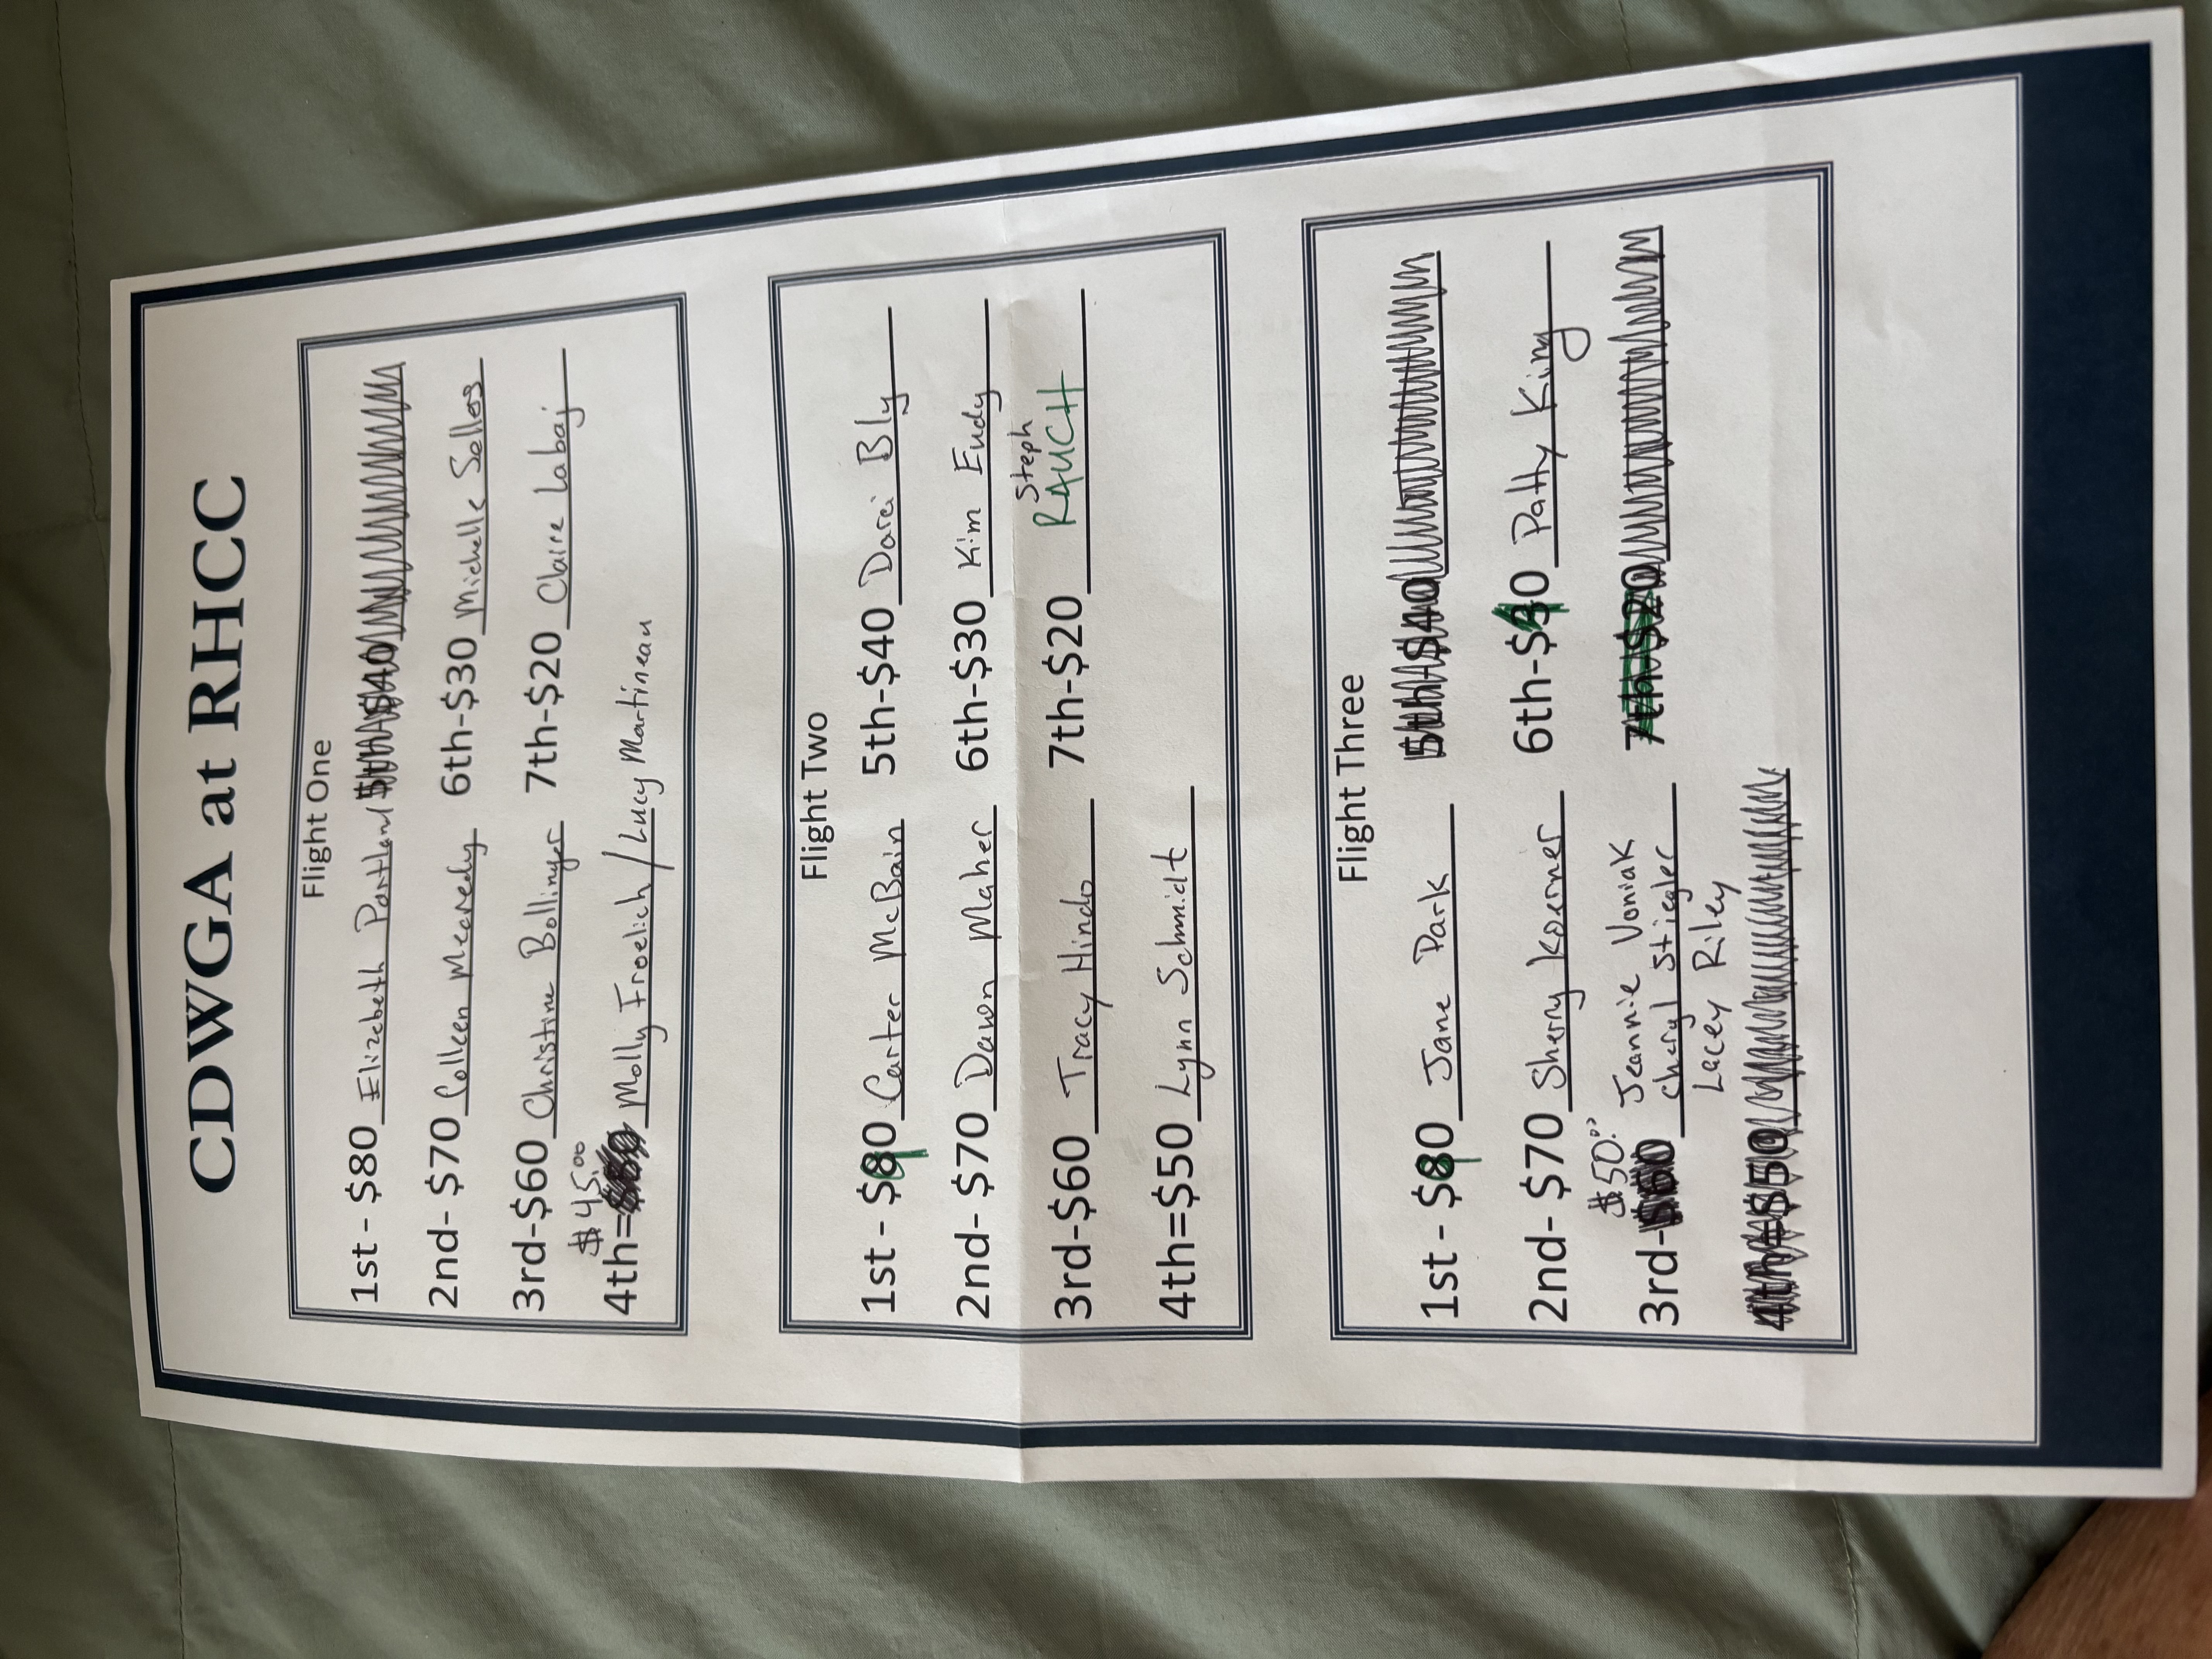 CDWGA at RHCC
Flight One
1st - $80 Elizabeth Portland 5th-$40
2nd- $70 Colleen Mecredy 6th-$30 Michelle Selles
3rd-$60 Christine Bollinger 7th-$20 Claire Labaj
$45.00
4th= Molly Froelich / Lucy Martineau
Flight Two
1st - $80 Carter McBain 5th-$40 Darci Bly
2nd- $70 Dawn Maher 6th-$30 Kim Eudy
Steph
3rd-$60 Tracy Hindo 7th-$20 RAUCH
4th=$50 Lynn Schmidt
Flight Three
1st - $80 Jane Park 5th-$40
2nd- $70 Sherry Koerner 6th-$40 Patty King
$50.00 Jeannie Voniak
3rd- Cheryl Stiegler 7th-$20
Lacey Riley
4th=$50